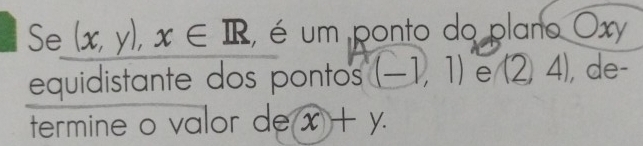 Se (x, y), x ∈ ℝ, é um ponto do plano Oxy
equidistante dos pontos (−1, 1) e (2, 4), de-
termine o valor de x + y.